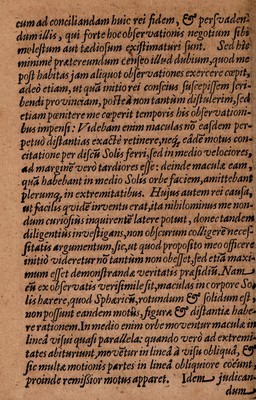 cum ad conciliandam huic rei fidem, & persvaden-
dum illis, qui forte hoc observationis negotium sibi
molestum aut tædiosum existimaturi sunt. Sed hic
minimè prætereundum censeo illud dubium, quod me
post habitas jam aliquot observationes exercere cœpit,
adeo etiam, ut quâ initio rei conscius susceperim scri-
bendi provinciam, posteà non tantùm distulerim, sed
etiam pœnitere me cœperit temporis his observationi-
bus impensi: Videbam enim maculas nō easdem per-
petuò distantias exactè retinere, neq; eâdē motus con-
citatione per discū Solis ferri, sed in medio velociores,
ad margine verò tardiores esse: deinde maculæ eam,
quâ habebant in medio Solis orbe faciem, amittebant
plerunq; in extremitatibus. Hujus autem rei causa,
ut facilis quidē inventu erat, ita nihilominus me non-
dum curiosiùs inquirentē latere potuit, donec tandem
diligentiùs investigans, non obscurum colligere neces-
sitatis argumentum, sic, ut quod proposito meo officere
initiò videretur nō tantùm non obesset, sed etiā maxi-
mum esset demonstrandæ veritatis præsidiū. Nam
cū ex observatis verisimile sit, maculas in corpore So-
lis hærere, quod Sphæricū, rotundum & solidum est,
non possunt eandem motūs, figuræ & distantiæ habe-
re rationem. In medio enim orbe moventur maculæ in
lineâ visui quasi parallela: quando verò ad extremi-
tates abiturint, movētur in lineâ à visu obliquâ, &
sic multæ motionis partes in lineâ obliquiore coëunt,
proinde remissior motus apparet. Idem judican-
dum